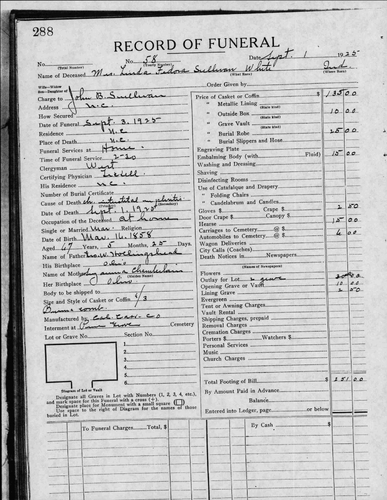 288
RECORD OF FUNERAL
No. 58 Date Sept. 1 1925
(Total Number) (Yearly Number)
Name of Deceased Mrs. Linda Sullivan White Ind.
(What Race) (Where Born)
Charge to John B. Sullivan
Address N.C.
How Secured
Date of Funeral Sept. 3, 1925
Residence N.C.
Place of Death N.C.
Funeral Services at Home
Time of Funeral Service 2:30
Clergyman West
Certifying Physician
His Residence N.C.
Number of Burial Certificate
Cause of Death ch. interstitial nephritis
Date of Death Sept. 1, 1925
Occupation of the Deceased at home
Single or Married Mar. Religion
Date of Birth Mar. 16, 1858
Aged 67 Years 5 Months Days
Name of Father
His Birthplace Ohio
Name of Mother
Her Birthplace Ohio
Body to be shipped to
Size and Style of Casket or Coffin 6/3
Manufactured by
Interment at Cemetery
Lot or Grave No. Section No.
1.
2.
3.
4.
5.
6.
Diagram of Lot or Vault
Designate all Graves in Lot with Numbers (1, 2, 3, 4, etc.),
and mark space for this Funeral with a cross (+).
Designate place for Monument with a small square
Use space to right of Diagram for the names of those
buried in Lot.
Order Given by
Price of Casket or Coffin 135.00
" Metallic Lining
" Outside Box 10.00
" Grave Vault
" Burial Robe 25.00
" Burial Slippers and Hose
Engraving Plate
Embalming Body (with Fluid) 15.00
Shaving
Disinfecting Rooms
Use of Catafalque and Drapery
" Folding Chairs
" Candelabrum and Candles
Gloves $ Crape $ 2.50
Door Crape $ Canopy $
Hearse 15.00
Carriages to Cemetery @ $
Automobiles to Cemetery @ $ 6.00
Wagon Deliveries
City Calls (Coaches)
Death Notices in Newspapers
(Names of Newspapers)
Flowers
Outlay for Lot
Opening Grave or Vault 10.00
Lining Grave 2.50
Evergreen
Tent or Awning Charges
Vault Rental
Shipping Charges, prepaid
Removal Charges
Cremation Charges
Porters $ Watchers $
Personal Services
Music
Church Charges
Total Footing of Bill $
By Amount Paid in Advance
Balance
Entered into Ledger, page or below
To Funeral Charges, Total $ By Cash $